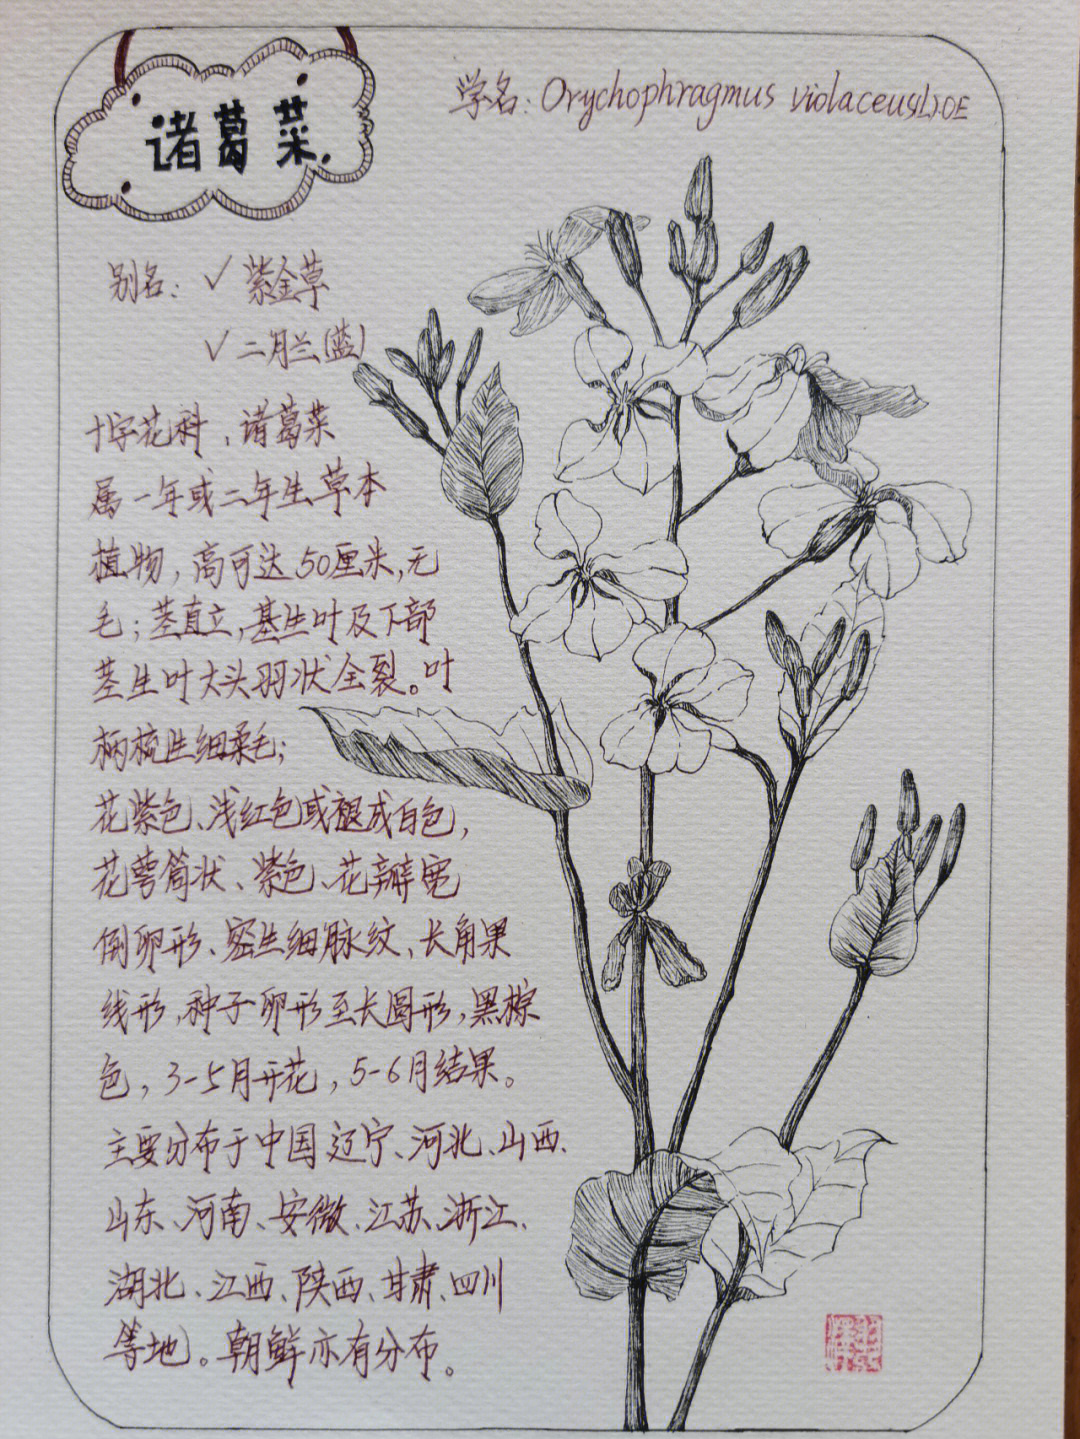 诸葛菜
学名: Orychophragmus violaceus(L)OE
别名: ✓ 紫金草
✓ 二月兰(蓝)
十字花科、诸葛菜
属一年或二年生草本
植物,高可达50厘米,无
毛;茎直立,基生叶及下部
茎生叶大头羽状全裂。叶
柄梳生细柔毛;
花紫色、浅红色或褪成白色,
花萼筒状、紫色、花瓣宽
倒卵形、密生细脉纹、长角果
线形,种子卵形至长圆形,黑棕
色,3-5月开花,5-6月结果。
主要分布于中国辽宁、河北、山西、
山东、河南、安微、江苏、浙江、
湖北、江西、陕西、甘肃、四川
等地。朝鲜亦有分布。